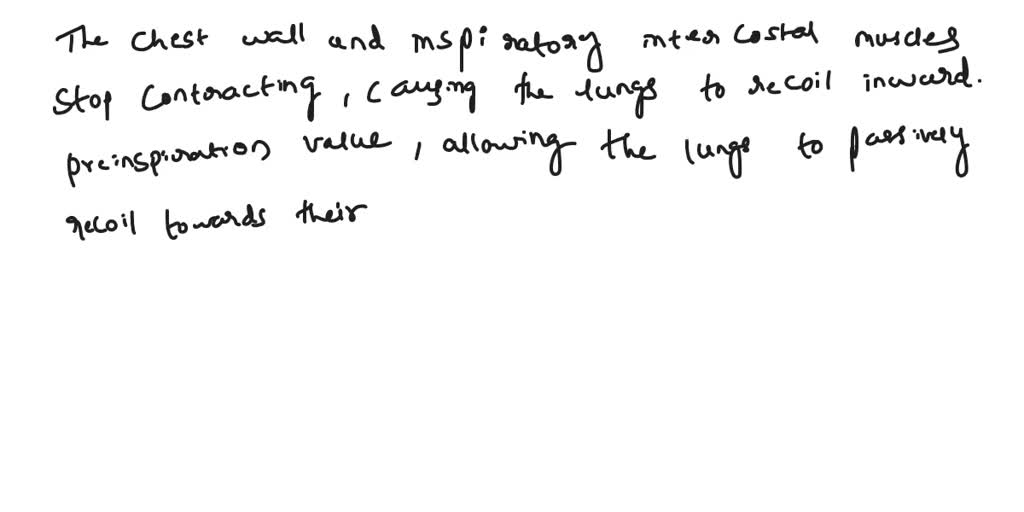 The chest wall and mspiratory intercostal muscles
stop contracting, causing the lungs to recoil inward.
preinspiration value, allowing the lungs to passively
recoil towards their